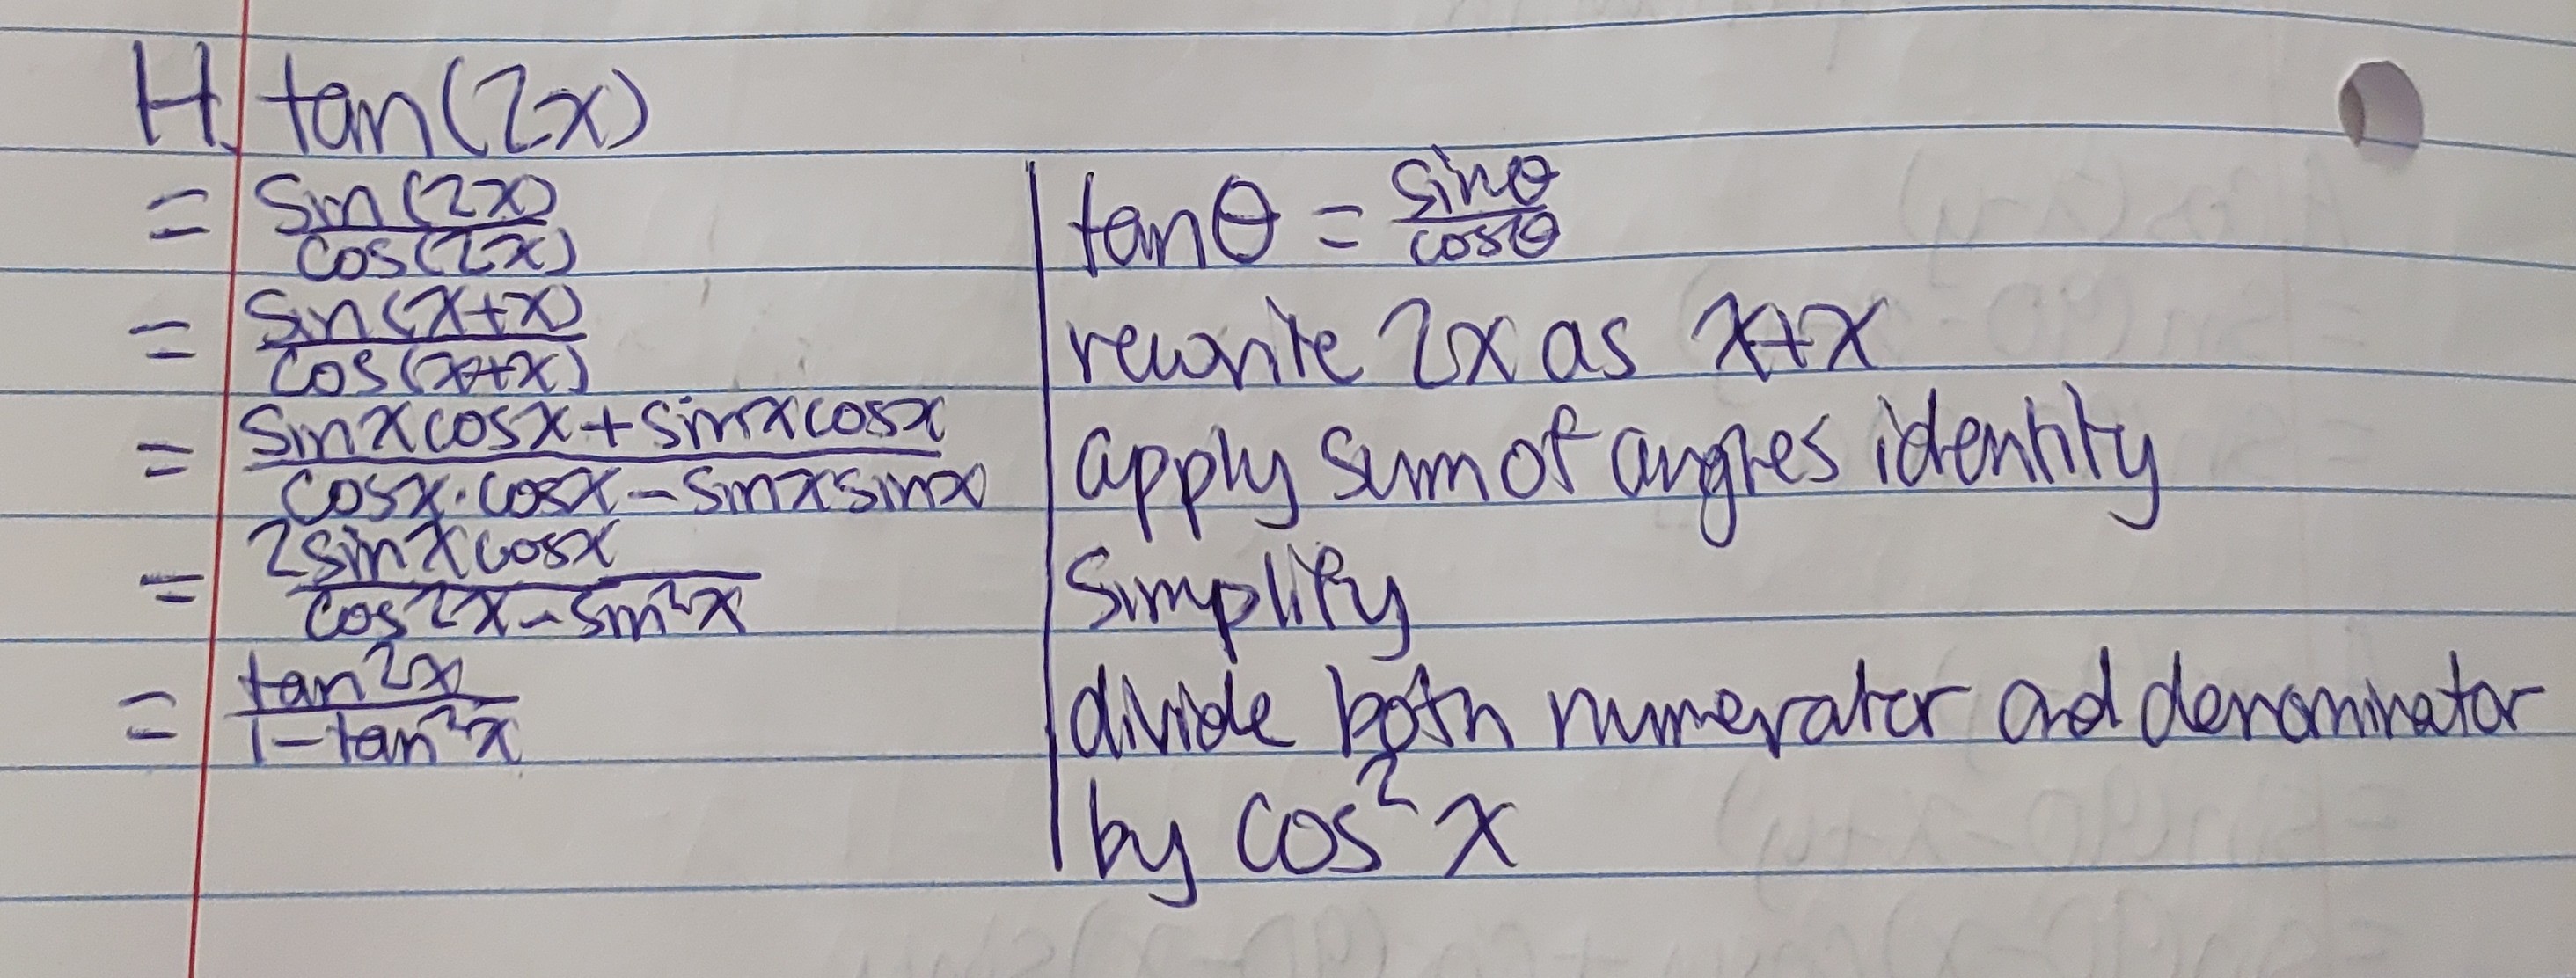 H. tan(2x)
= sin(2x)/cos(2x) | tanθ = sinθ/cosθ
= sin(x+x)/cos(x+x) | rewrite 2x as x+x
= sinxcosx+sinxcosx/cosx·cosx-sinxsinx | apply sum of angles identity
= 2sinxcosx/cos²x-sin²x | simplify
= tan2x/1-tan²x | divide both numerator and denominator
by cos²x